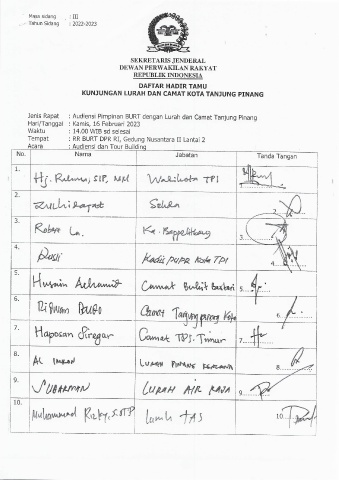 Masa sidang : III
Tahun Sidang : 2022-2023
SEKRETARIS JENDERAL
DEWAN PERWAKILAN RAKYAT
REPUBLIK INDONESIA
DAFTAR HADIR TAMU
KUNJUNGAN LURAH DAN CAMAT KOTA TANJUNG PINANG
Jenis Rapat : Audiensi Pimpinan BURT dengan Lurah dan Camat Tanjung Pinang
Hari/Tanggal : Kamis, 16 Februari 2023
Waktu : 14.00 WIB sd selesai
Tempat : RR BURT DPR RI, Gedung Nusantara II Lantai 2
Acara : Audiensi dan Tour Building
No. Nama Jabatan Tanda Tangan
1. Hj. Rahma, SIP, MM Walikota TPI 1
2. Zulhidayat Sekda 2
3. Ka. Bappelitbang 3
4. Rusli Kadis PUPR Kota TPI 4
5. Husain Camat Bukit Bestari 5
6. Ridwan Camat Tanjungpinang Kota 6
7. Haposan Siregar Camat TPI. Timur 7
8. AL IMRAN LURAH PINANG KENCANA 8
9. SUDARMAN LURAH AIR RAJA 9
10. Muhammad Rizky, S.STP Lurah TAS 10